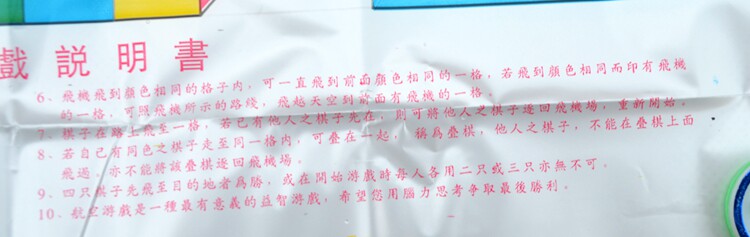 戲說明書
6、飛機飛到顏色相同的格子内，可一直飛到前面顏色相同的一格，若飛到顏色相同而印有飛機
的一格，可照飛機所示的路綫，飛越天空到前面有飛機的一格。
7、棋子在路上飛至一格，若已有他人之棋子先在，則可將他人之棋子逐回飛機場，重新開始。
8、若自己有同色之棋子走至同一格内，可疊在一起，稱爲疊棋，他人之棋子，不能在疊棋上面
飛過，亦不能將該疊棋逐回飛機場。
9、四只棋子先飛至目的地者爲勝，或在開始游戲時每人各用二只或三只亦無不可。
10、航空游戲是一種最有意義的益智游戲，希望您用腦力思考争取最後勝利。